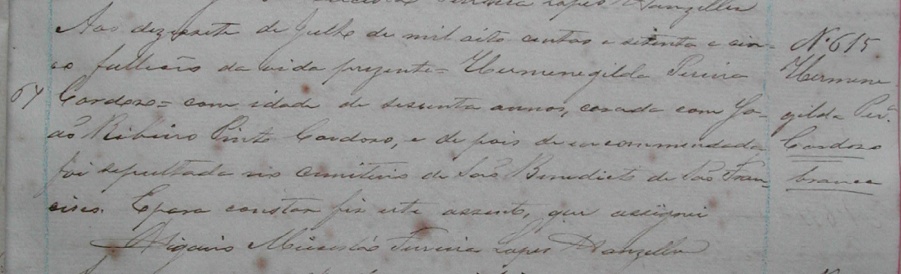 Lopes Wanzeller
Aos dezesete de Julho de mil oito centos e setenta e cin-
co falleceo da vida prezente = Hermenegilda Pereira
Cardozo = com idade de sessenta annos, cazada com Jo-
ão Ribeiro Pinto Cardozo, e de pois de encommendada
foi sepultada no cemiterio de São Benedicto de São Fran-
cisco. E para constar fiz este assento, que assignei
Ferreira Lopes Wanzeller
Nº 615
Hermene
gilda Per.ª
Cardozo
branca